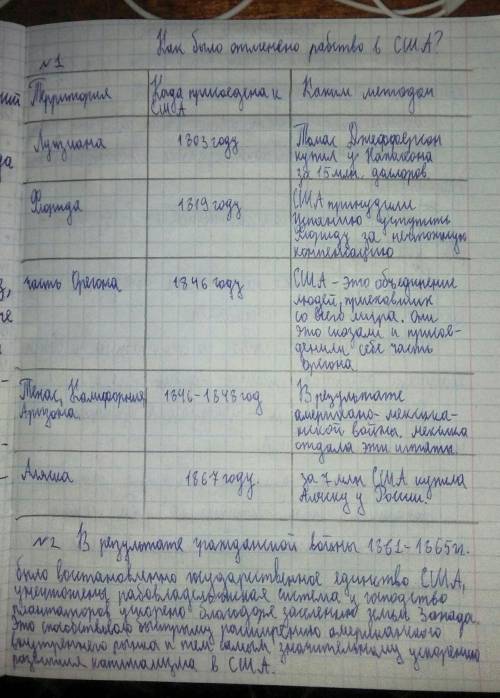 Как было отменено рабство в США?
№1
Территория
Когда присоединена к
США
Каким методом
Луизиана
1803 году
Томас Джефферсон
купил у Наполеона
за 15 млн. долларов
Флорида
1819 году
США принудили
Испанию уступить
Флориду за ничтожную
компенсацию
часть Орегона
1846 году
США - это объединение
людей, приехавших
со всего мира. Они
это сказали и присое-
денили себе часть
Орегона
Техас, Калифорния,
Аризона.
1846-1848 год
В результате
американо-мексика-
нской войны. Мексика
отдала эти штаты.
Аляска
1867 году.
за 7 млн США купила
Аляску у России.
№2 В результате гражданской войны 1861-1865 гг.
было восстановлено государственное единство США,
уничтожены рабовладельческая система и господство
плантаторов ускорено благодаря заселению земель Запада.
Это способствовало быстрому расширению американского
внутреннего рынка и тем самым значительному ускорению
развития капитализма в США.